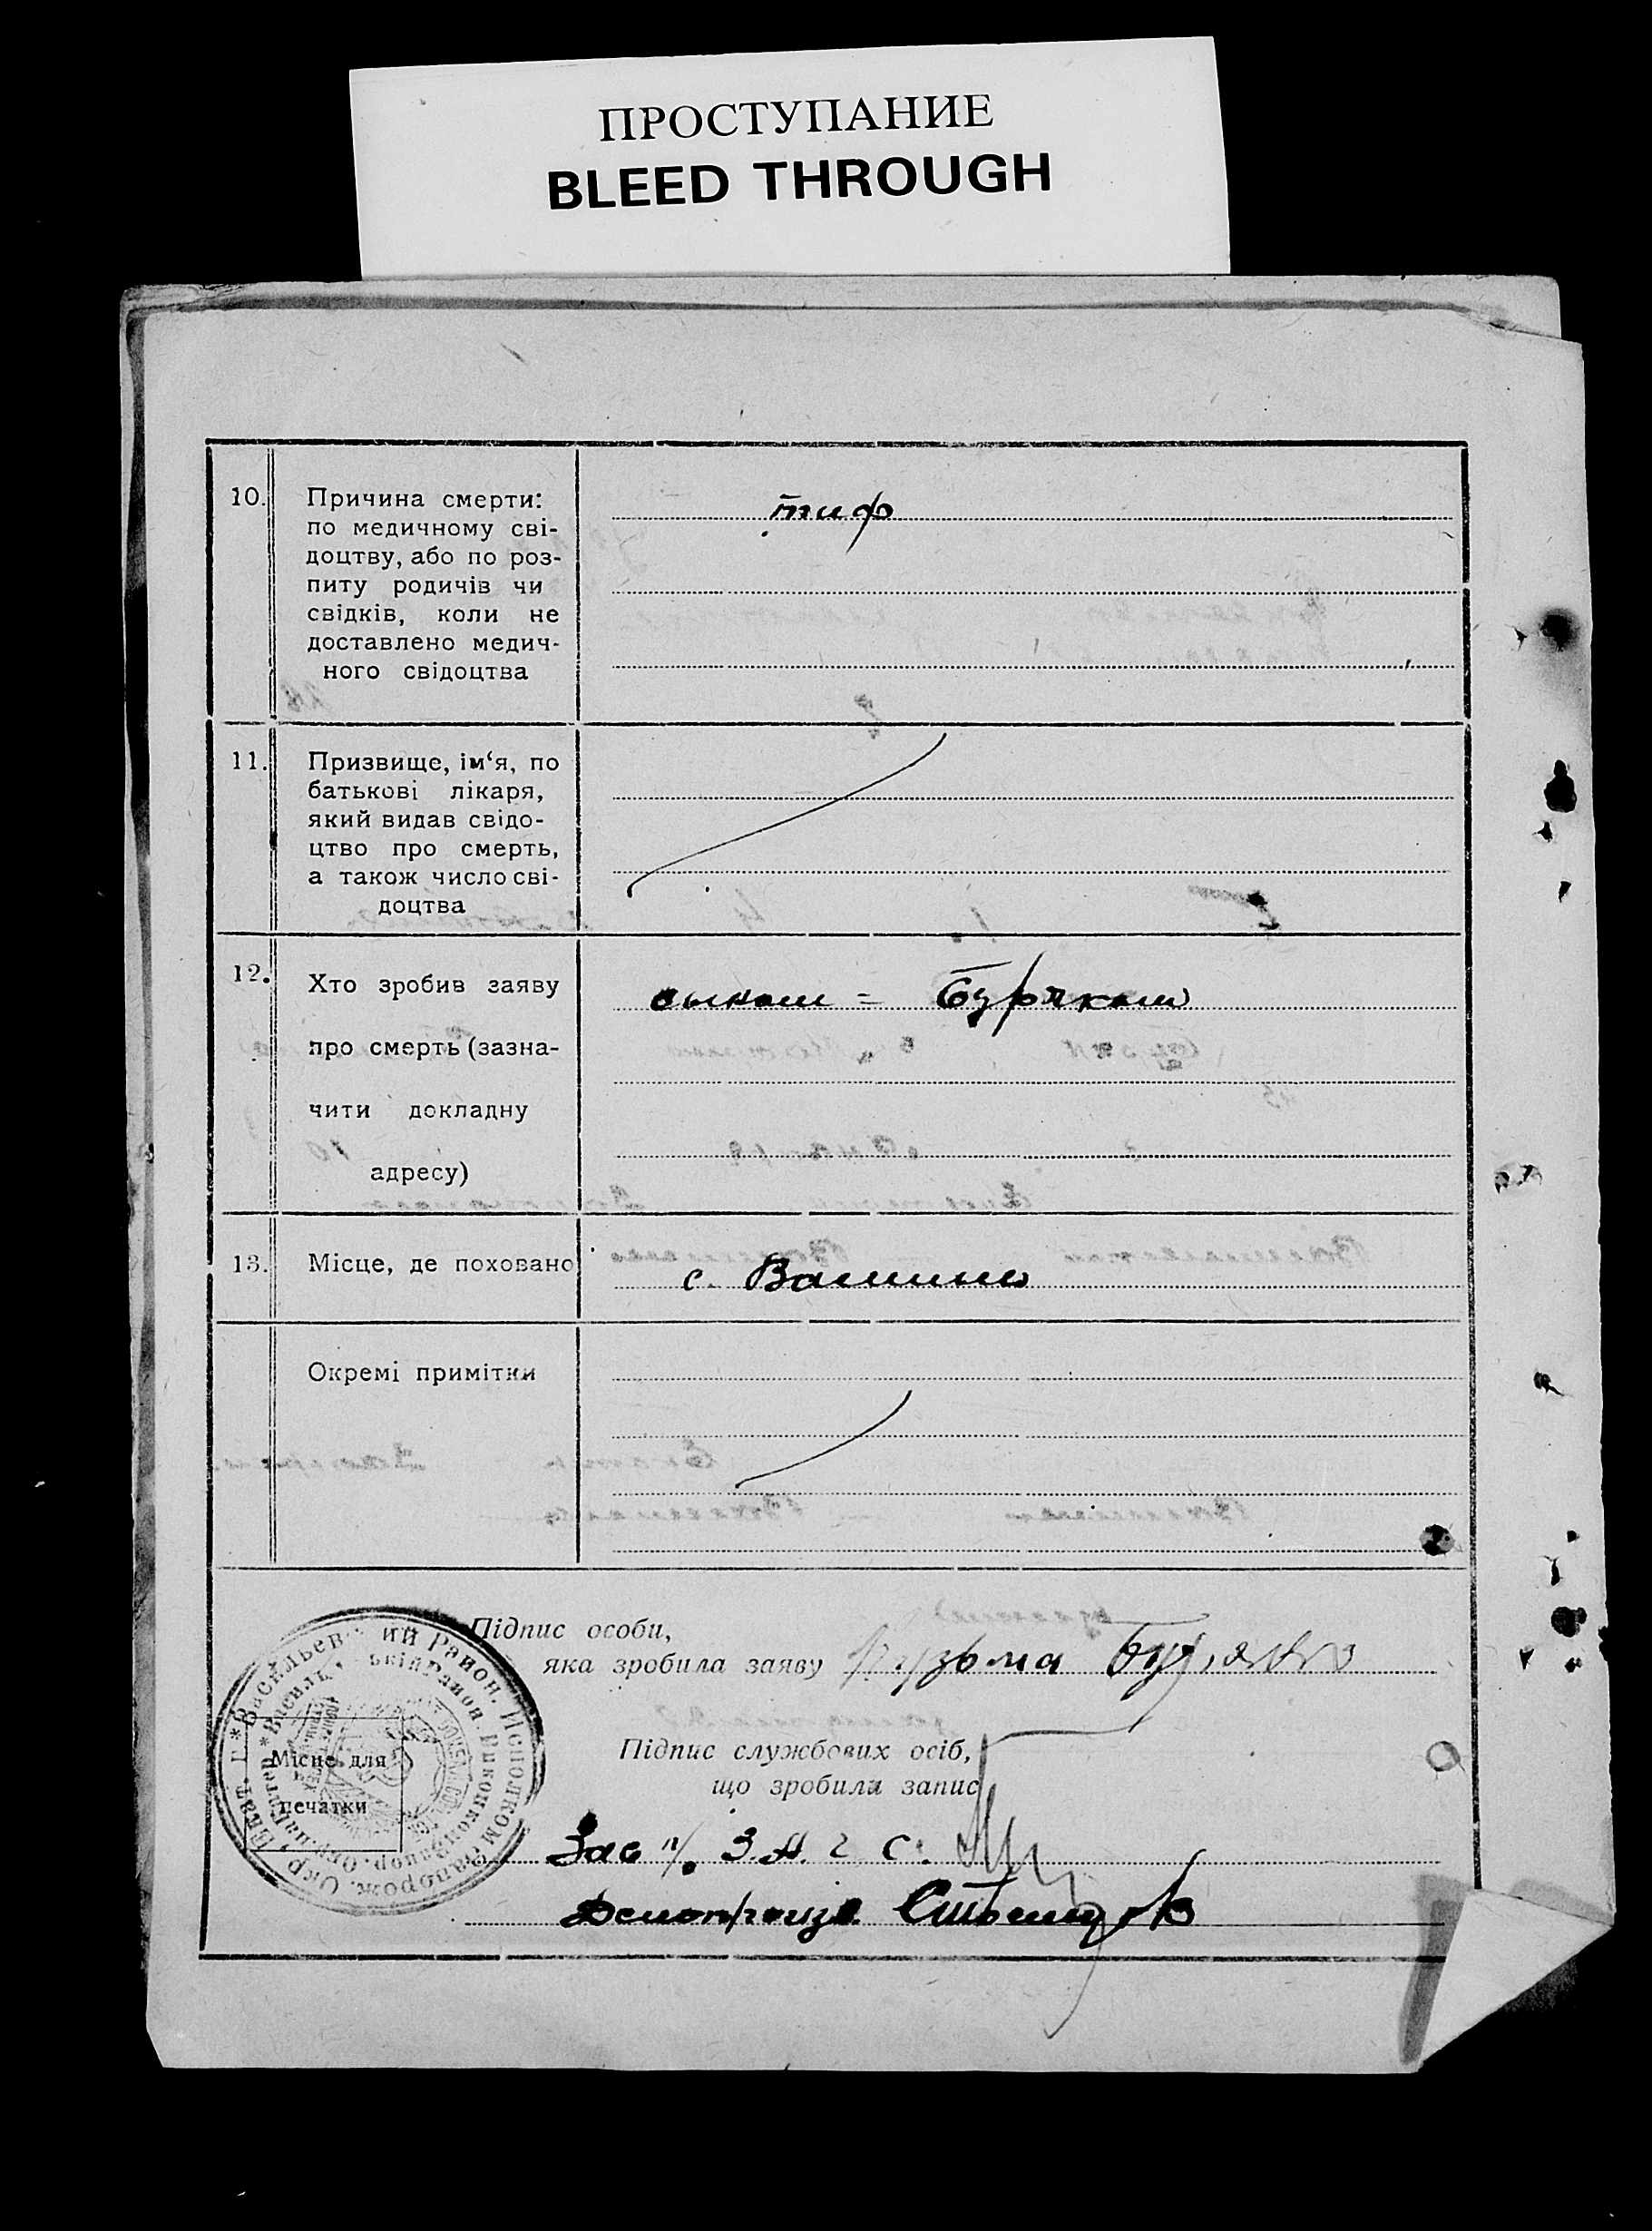 ПРОСТУПАНИЕ
BLEED THROUGH
10.
Причина смерти:
по медичному сві-
доцтву, або по роз-
питу родичів чи
свідків, коли не
доставлено медич-
ного свідоцтва
тиф
11.
Призвище, ім‘я, по
батькові лікаря,
який видав свідо-
цтво про смерть,
а також число сві-
доцтва
12.
Хто зробив заяву
про смерть (зазна-
чити докладну
адресу)
сыном = Буряком
13.
Місце, де поховано
с.
Окремі примітки
Підпис особи,
яка зробила заяву Кузьма
Підпис службових осіб,
що зробили запис
Місце для
печатки
Зав п/. З. А. г. С.
Делопроизв.